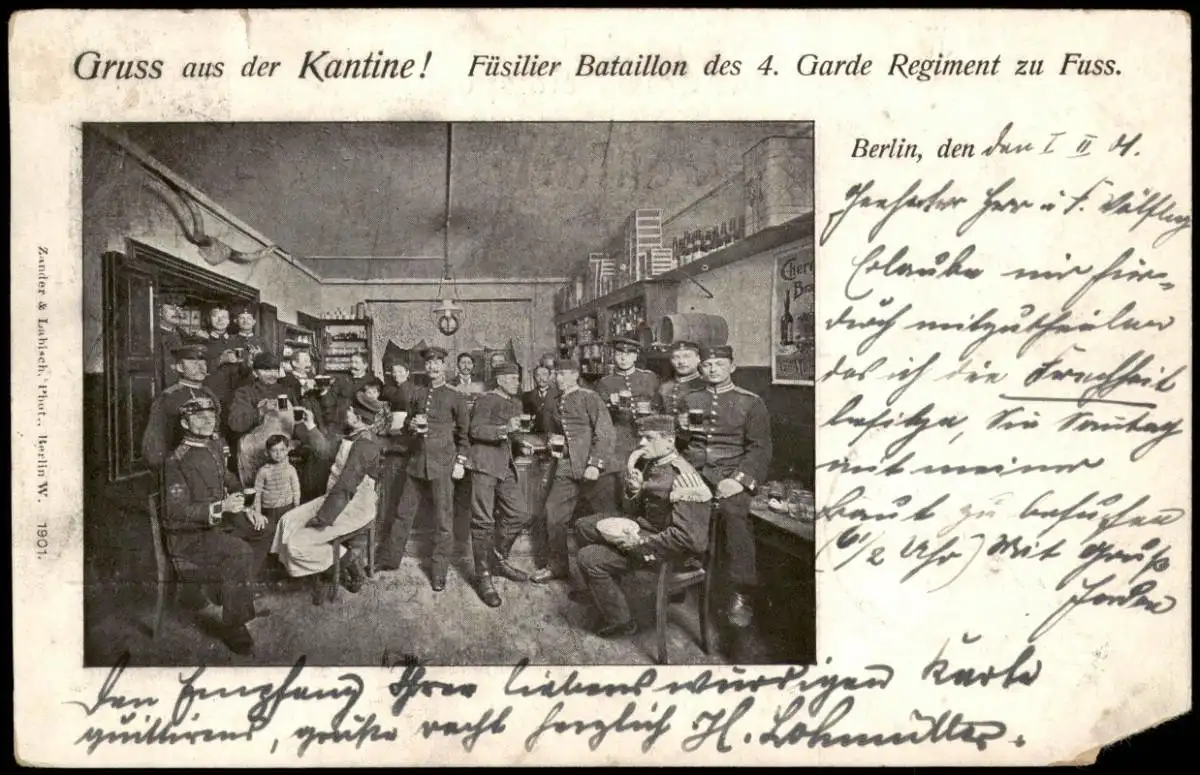 Gruss aus der Kantine! Füsilier Bataillon des 4. Garde Regiment zu Fuss.
Berlin, den den I II 01.
Geehrter Herr u F.
Erlaube mir hier-
durch mitzutheilen
das ich die Frechheit
besitze, Sie Sontag
mit meiner
Braut zu besuchen
(6 1/2 Uhr) Mit Gruß
Zander & Labisch, Phot., Berlin W. 1901.
Den Empfang Ihrer liebenswürdigen Karte
quittirend, grüße recht herzlich H. Lohmüller.